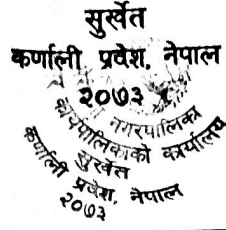 सुर्खेत
कर्णाली प्रदेश, नेपाल
२०७३
नगरपालिका
कार्यपालिकाको कार्यालय
सुर्खेत
कर्णाली प्रदेश, नेपाल
२०७३